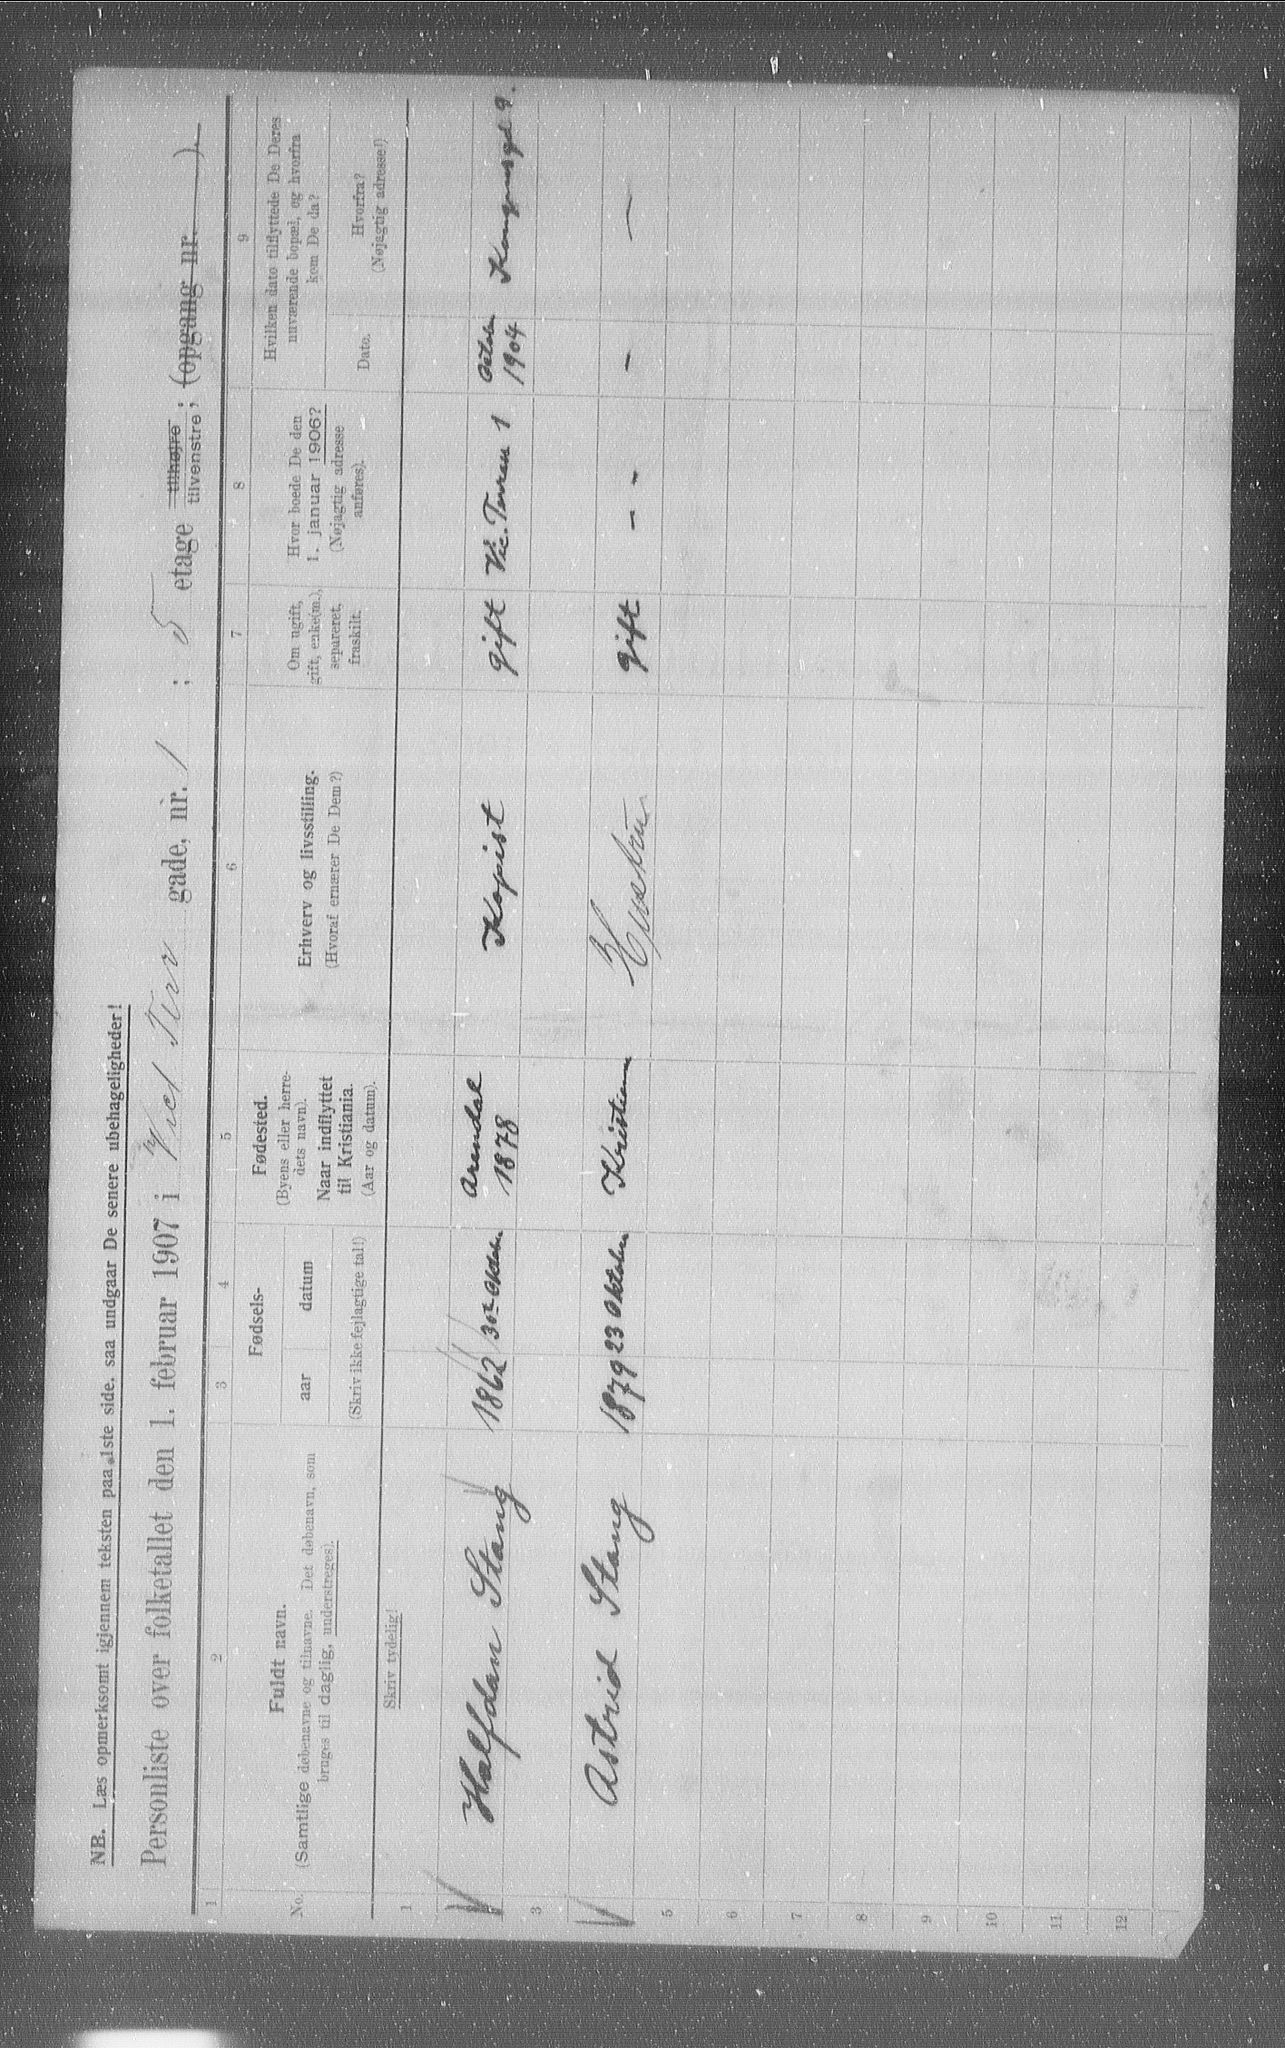 NB. Læs opmerksomt igjennem teksten paa 1ste side, saa undgaar De senere ubehageligheder!
Personliste over folketallet den 1. februar 1907 i Vict Terr gade, nr. 1; 5 etage tilhøjre tilvenstre; (opgang nr. ).
1 2 3 4 5 6 7 8 9
No.
Fuldt navn.
(Samtlige døbenavne og tilnavne. Det døbenavn, som
bruges til daglig, understreges).
Skriv tydelig!
Fødsels-
aar datum
(Skriv ikke fejlagtige tal!)
Fødested.
(Byens eller herre-
dets navn).
Naar indflyttet
til Kristiania.
(Aar og datum).
Erhverv og livsstilling.
(Hvoraf ernærer De Dem?)
Om ugift,
gift, enke(m.),
separeret,
fraskilt.
Hvor boede De den
1. januar 1906?
(Nøjagtig adresse
anføres).
Hvilken dato tilflyttede De Deres
nuværende bopæl, og hvorfra
kom De da?
Dato.
Hvorfra?
(Nøjagtig adresse!)
1
Halfdan Stang 1862 Arendal 1878 Kopist gift Vic. Terrasse 1 1904
3
Astrid Stang 1879 23 Oktober Hustru gift - - - -
5
6
7
8
9
10
11
12